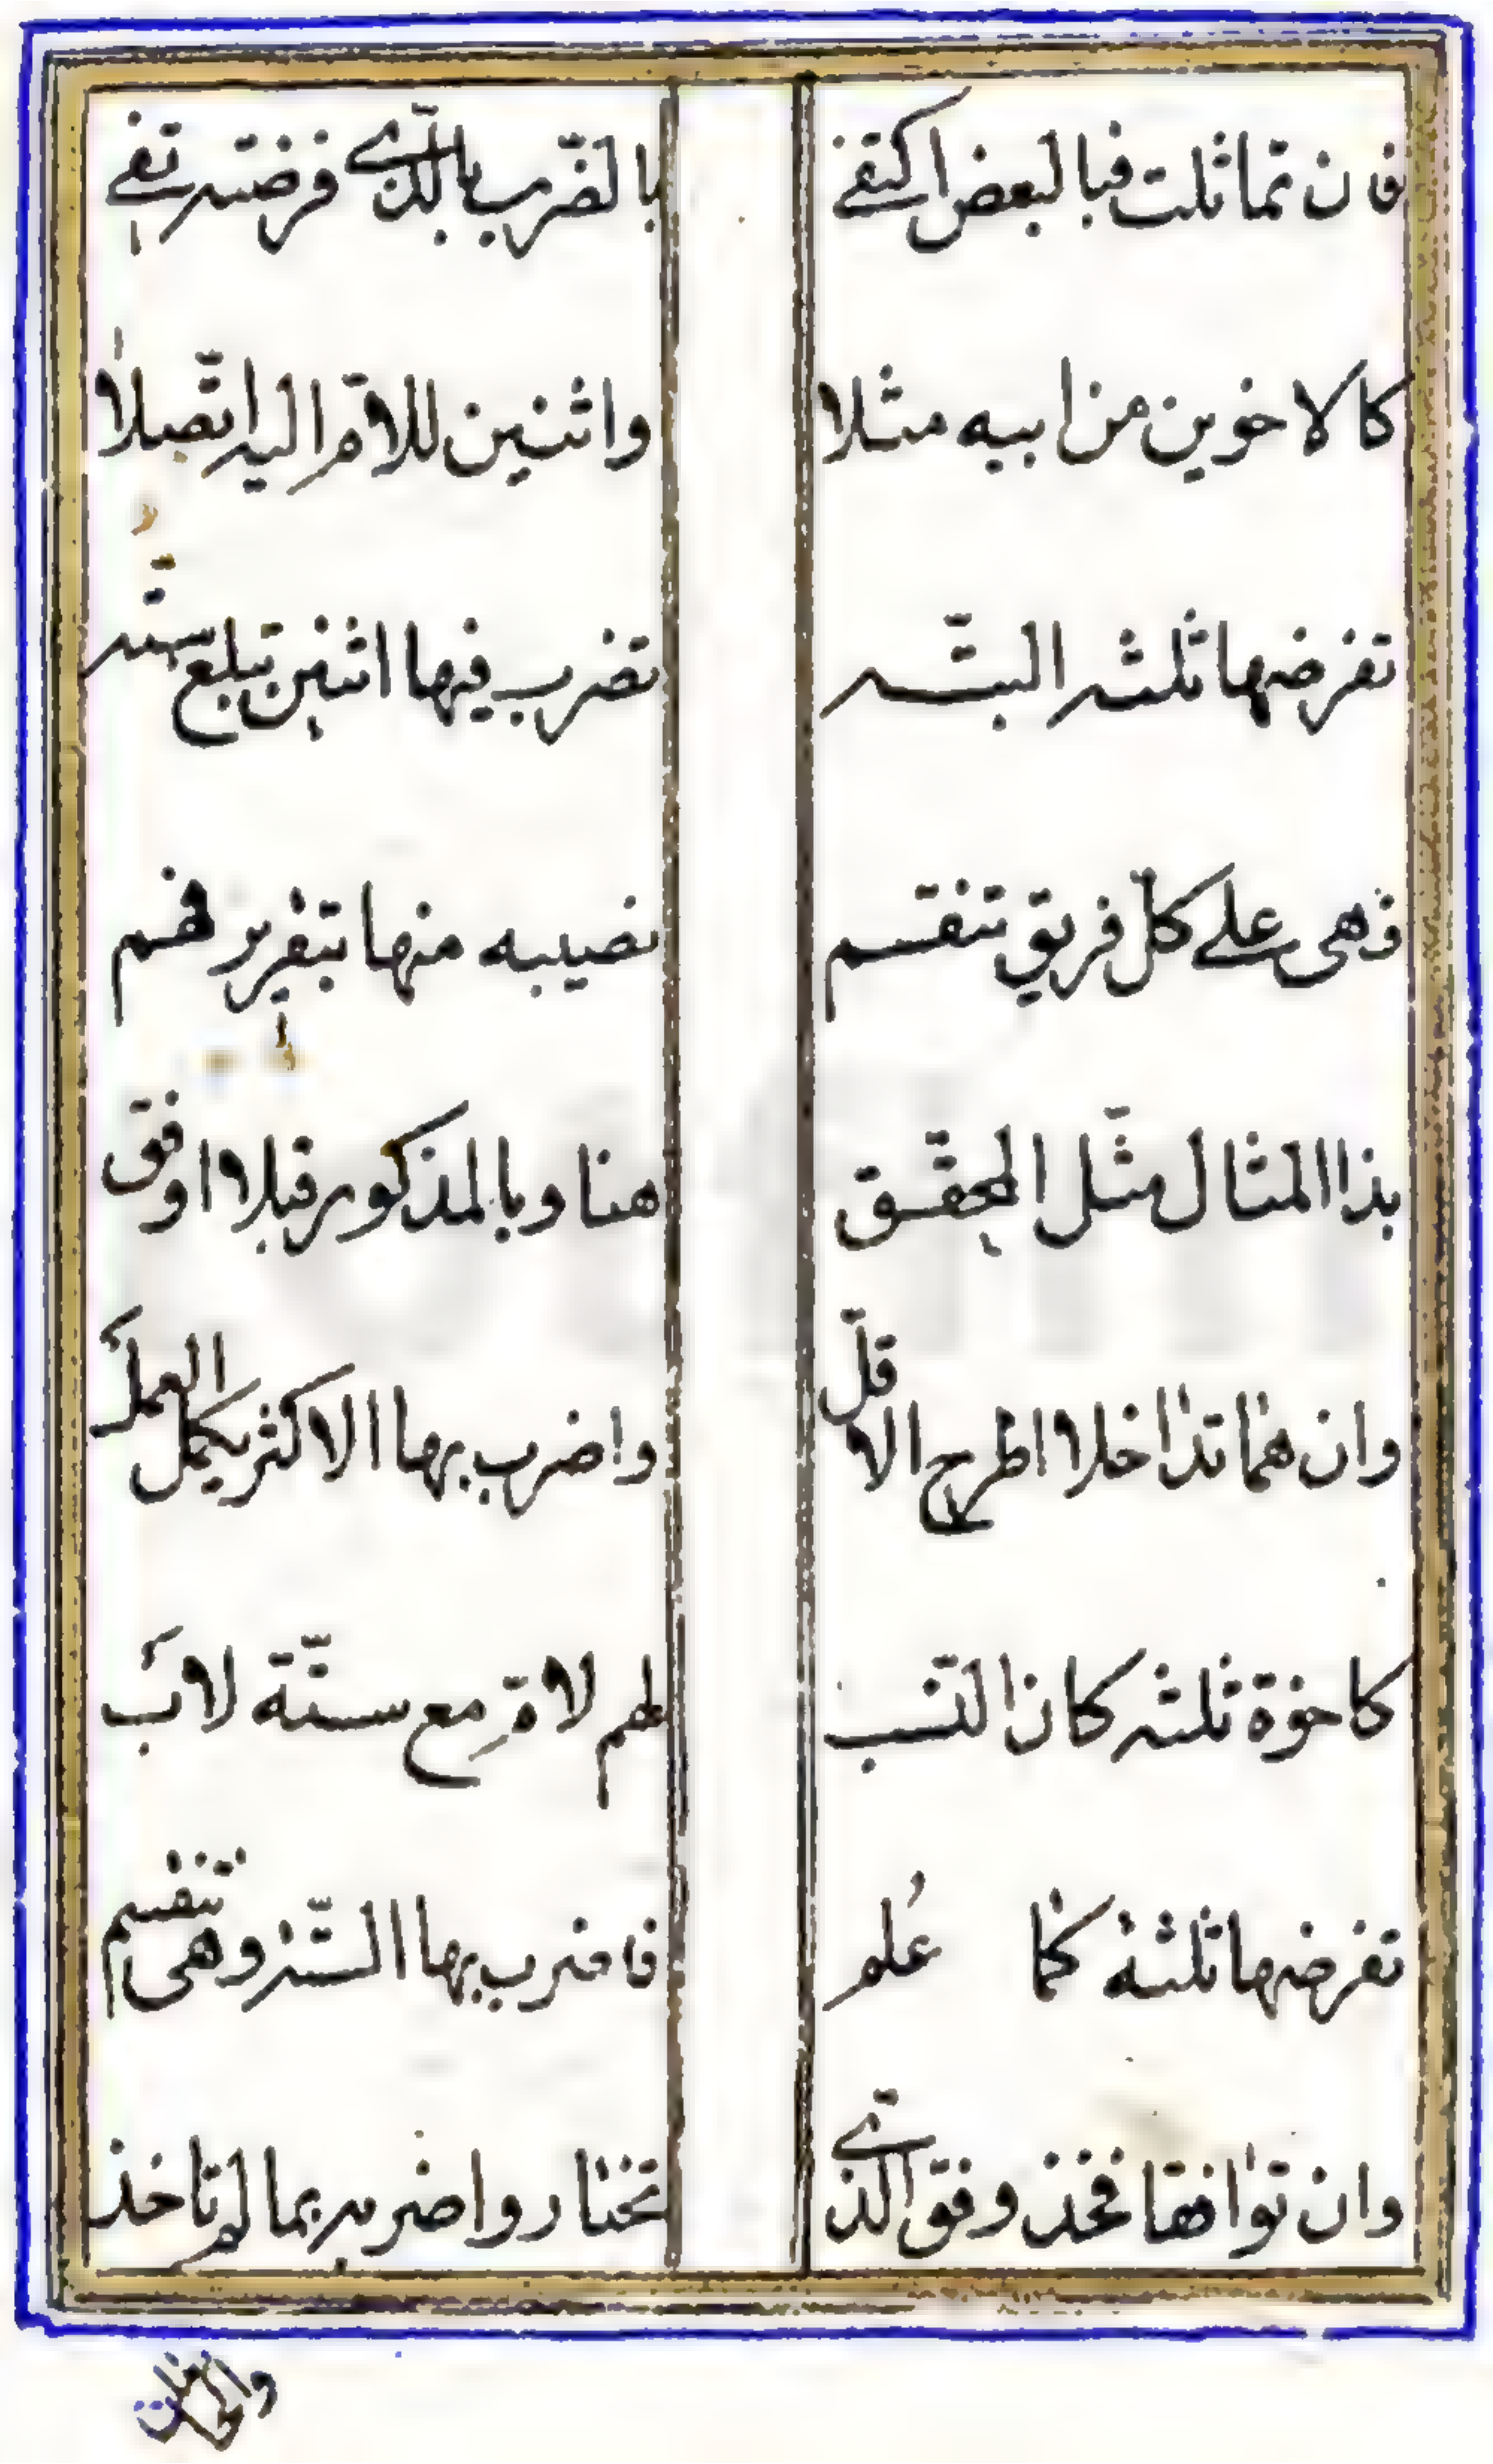 فان تماثلت فبالبعض اكتفے بالضّرب بالّذے فرضته تفے
كالاخوين من ابيه مثلا واثنين للامّ اليه اتّصلا
تفرضها ثلثه البتّه تضرب فيها اثنين تبلغ ستّه
فهى علے كلّ فريق تنقسم نصيبه منها فهم
بذا المثال مثّل المحقّق هنا وبالمذكور قبلا اوفق
وان هما تداخلا اطرح الاقلّ واضرب بها الاكثر يكمل العمل
كاخوة ثلثه كان النّسب لهم لامّ مع ستّة لاب
تفرضها ثلثة كما عُلم فاضرب بها السّتّة وهى تنقسم
وان توافقا فخذ وفق الّذے تختار واضربه بما لم تاخذ